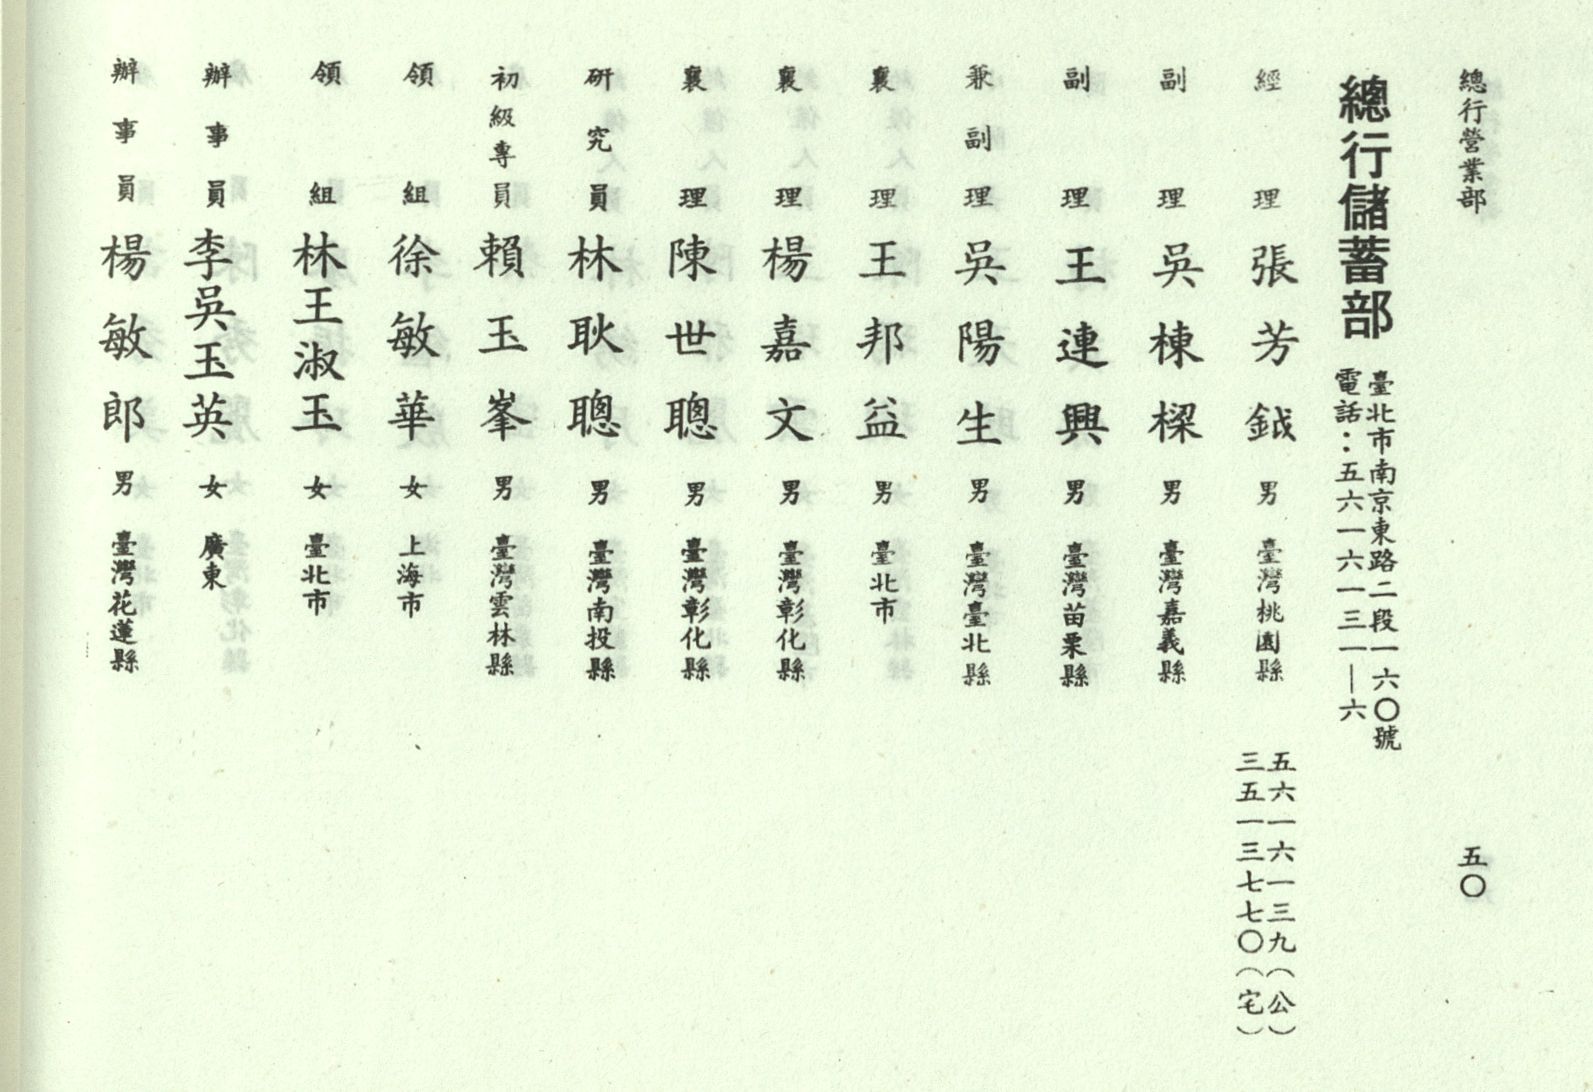 總行營業部
五〇
總行儲蓄部
臺北市南京東路二段一六〇號
電話：五六一六一三一—六
經理 張芳鉞 男 臺灣桃園縣 五六一六一三九（公）
三五一三七七〇（宅）
副理 吳棟樑 男 臺灣嘉義縣
副理 王連興 男 臺灣苗栗縣
兼副理 吳陽生 男 臺灣臺北縣
襄理 王邦益 男 臺北市
襄理 楊嘉文 男 臺灣彰化縣
襄理 陳世聰 男 臺灣彰化縣
研究員 林耿聰 男 臺灣南投縣
初級專員 賴玉峯 男 臺灣雲林縣
領組 徐敏華 女 上海市
領組 林王淑玉 女 臺北市
辦事員 李吳玉英 女 廣東
辦事員 楊敏郎 男 臺灣花蓮縣